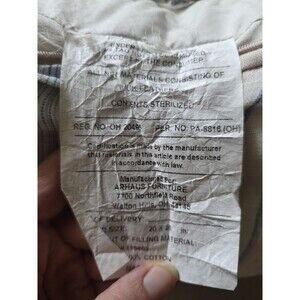 UNDER
EXCEPT BY THE CONSUMER
ALL NEW MATERIALS CONSISTING OF
CONTENTS STERILIZED
REG. NO. OH 2049 PER. NO. PA-8816 (OH)
Certification is made by the manufacturer
that materials in this article are described
in accordance with law.
Manufactured For
ARHAUS FURNITURE
7700 Northfield Road
Walton Hills, OH 44146
OF DELIVERY
SIZE: 20 X
OF FILLING MATERIAL
COTTON